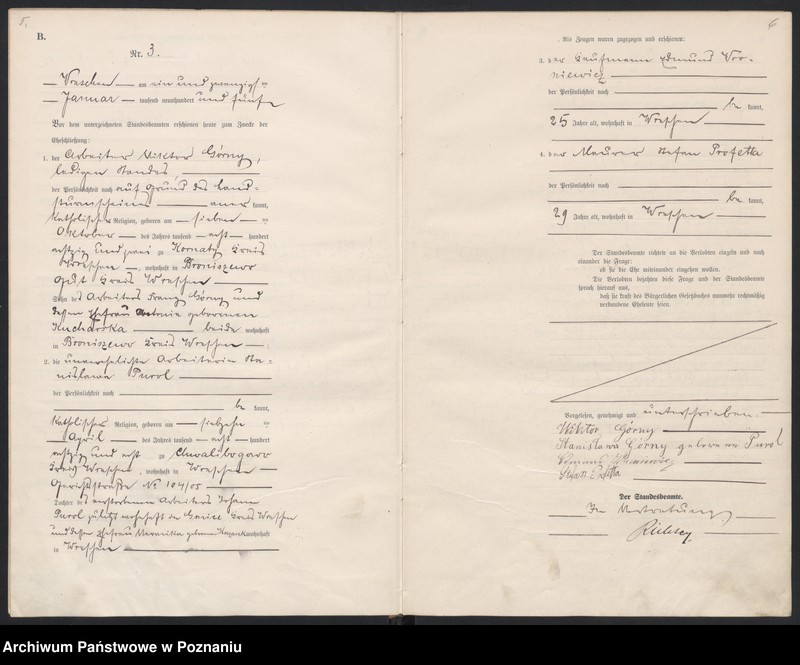 5.
B.
Nr. 3.
Wreschen am ein und zwanzigsten
Januar tausend neunhundert und fünf
Vor dem unterzeichneten Standesbeamten erschienen heute zum Zwecke der
Eheschließung:
1. der Arbeiter Wiktor Górny,
ledigen Standes,
der Persönlichkeit nach auf Grund des Land-
sturmscheines aner kannt,
katholischer Religion, geboren am sieben ten
Oktober des Jahres tausend acht hundert
achtzig und zwei zu Kornaty Kreis
Wreschen, wohnhaft in Broniszewo
Gut Kreis Wreschen
Sohn des Arbeiters Franz Górny und
dessen Ehefrau Antonie geborenen
Kucharska beide wohnhaft
in Broniszewo Kreis Wreschen
2. die unverehelichte Arbeiterin Sta-
nislawa Purol
der Persönlichkeit nach
be kannt,
katholischer Religion, geboren am siebzehn ten
April des Jahres tausend acht hundert
achtzig und acht zu Chwalibogowo
Kreis Wreschen, wohnhaft in Wreschen
Gerichtsstraße No 104/05
Tochter des verstorbenen Arbeiters Johann
Purol zuletzt wohnhaft in Kreis Wreschen
und dessen Ehefrau geborenen wohnhaft
in Wreschen
6
Als Zeugen waren zugezogen und erschienen:
3. der Kaufmann Edmund Wro-
niewicz
der Persönlichkeit nach
be kannt,
25 Jahre alt, wohnhaft in Wreschen
4. der Maurer Stefan Profetta
der Persönlichkeit nach
be kannt,
29 Jahre alt, wohnhaft in Wreschen
Der Standesbeamte richtete an die Verlobten einzeln und nach
einander die Frage:
ob sie die Ehe miteinander eingehen wollen.
Die Verlobten bejahten diese Frage und der Standesbeamte
sprach hierauf aus,
daß sie kraft des Bürgerlichen Gesetzbuchs nunmehr rechtmäßig
verbundene Eheleute seien.
Vorgelesen, genehmigt und unterschrieben.
Wiktor Górny
Stanisława Górny geborene Purol
Stefan Profetta
Der Standesbeamte.
In Vertretung
Archiwum Państwowe w Poznaniu